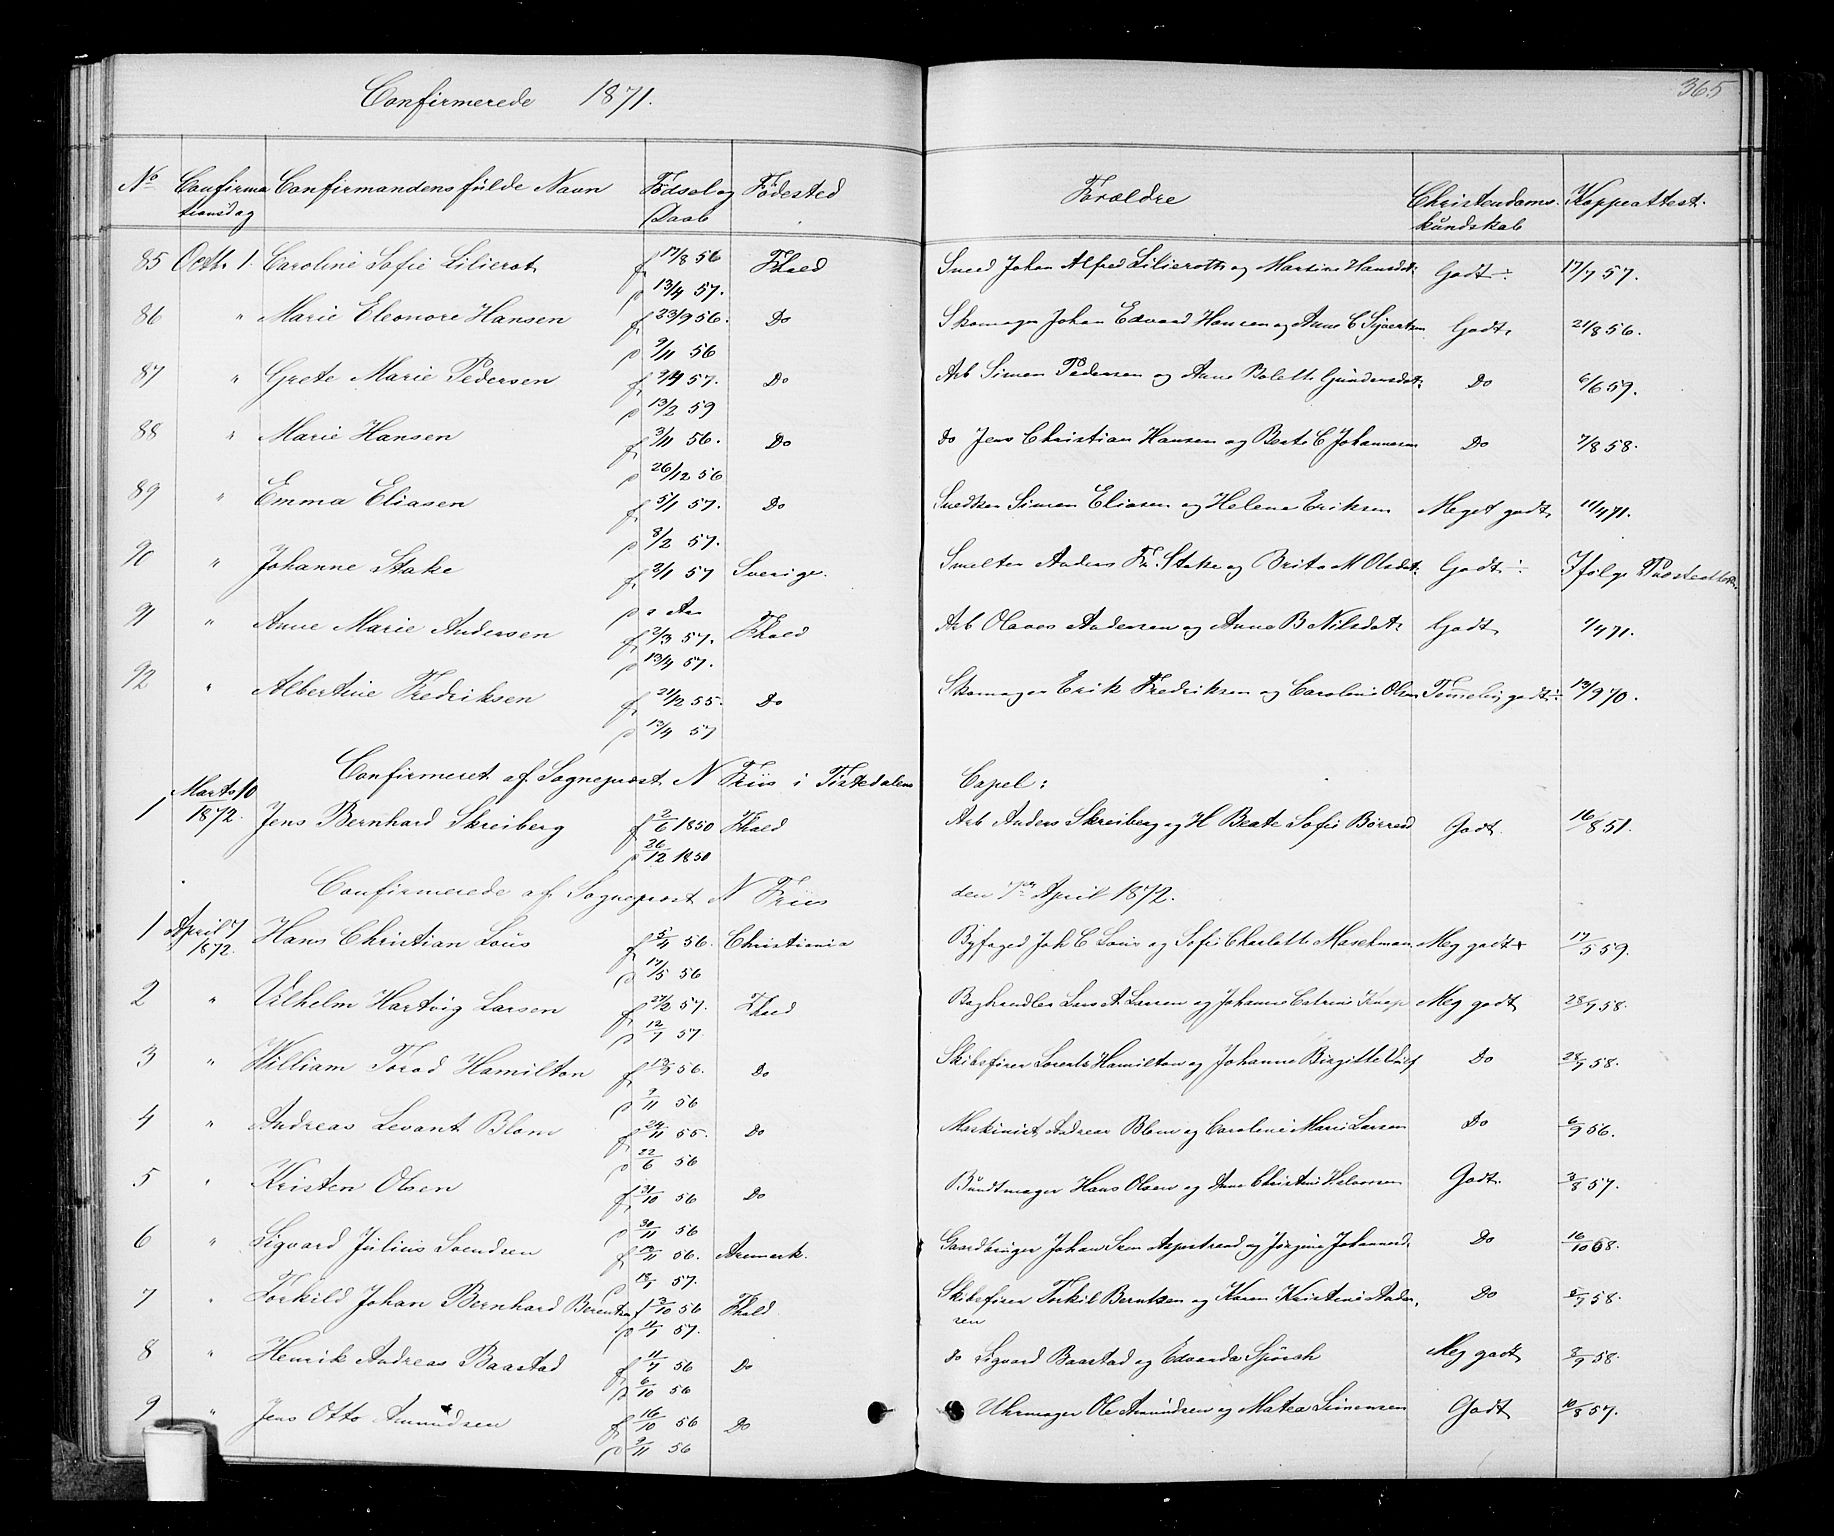 Confirmerede 1871.
365
No Confirma Confirmandens fulde Navn Fødsel og Fødested Forældre Christendoms- Koppeattest.
tionsdag Daab kundskab
85 Octb. 1. Caroline Sofie Lilierot f 17/8 56 Fhald Smed Johan Alfred Lilieroth og Martine Hansdt. Godt ÷ 17/7 57.
d 13/4 57.
86 " Marie Eleonore Hansen f 23/9 56. Do Skomager Johan Edvard Hansen og Anne C Syvertsen Godt. 21/8 56.
d 9/11 56
87 " Grete Marie Pedersen f 2/4 57. Do Arb Simon Pedersen og Anne Bolette Gundersdt. Do 6/6 59.
d 13/2 59
88 " Marie Hansen f 3/11 56. Do Do Jens Christian Hansen og Beate C Johannesen Do 7/8 58.
d 26/12 56
89 " Emma Eliasen f 5/1 57. Do Snedker Simon Eliasen og Helene Eriksen Meget godt 11/4 71.
d 8/2 57.
90 " Johanne Stake f 2/1 57 Sverige. Smelter Anders Fr. Stake og Brita M Olsdt. Godt ÷ Ifølge
d s Aa
91 " Anne Marie Andersen f 2/3 57. Fhald Arb Olaves Andersen og Anne B Nilsdat: Godt 1/4 71.
d 13/4 57.
92 " Albertine Fredriksen f 21/12 55. Do Skomager Erik Fredriksen og Caroline Olsen Temmelig godt ÷ 13/9 70.
d 13/4 57
Confirmeret af Sogneprest N Friis i Tistedalens Capel:
1 Marts 10 1872. Jens Bernhard Skreiberg f 2/6 1850 Fhald Arb Anders Skreiberg og H Beate Sofie Børresd Godt. 16/8 51.
d 26/12 1850
Confirmerede af Sogneprest N Friis den 7de April 1872.
1 April 7 1872. Hans Christian Lous f 5/4 56. Christiania Byfoged Joh C Lous og Sofie Charlotte Maschman Meg godt + 17/5 59.
d 17/5 56
2 " Vilhelm Hartvig Larsen f 27/2 57. Fhald Baghandler Lars A. Larsen og Johanne Catrine Knap Meg godt 28/9 58.
d 12/7 57
3 " William Torod Hamilton f 13/5 56. Do Skibsfører Lorents Hamilton og Johanne Birgitte Do 28/9 58.
d 9/11 56
4 " Andreas Levant Blom f 24/11 55. Do Maskinist Andreas Blom og Caroline Marie Larsen Do 6/9 56.
d 22/6 56
5 " Kristen Olsen f 31/10 56 Do Bundtmager Hans Olsen og Anne Christine Godt. 3/8 57.
d 30/11 56
6 " Sigvard Julius Svendsen f 12/11 56. Aremark. Gaardbruger Johan Aspestrand og Jørgine Johannesd. Do 16/10 68.
d 18/1 57.
7 " Torkild Johan Bernhard Berentsen f 2/10 56 Fhald Skibsfører Torkil Berntsen og Karen Kristine Ander- Do 8/9 58.
d 11/1 57. sen
8 " Henrik Andreas Baastad f 11/7 56 Do do Sigvard Baastad og Edvarda Spørch Meg godt 8/9 58.
d 6/10 56
9 " Jens Otto Amundsen f 16/10 56 Do Uhrmager Ole Amundsen og Matea Simensen Godt 10/8 57.
d 9/11 56